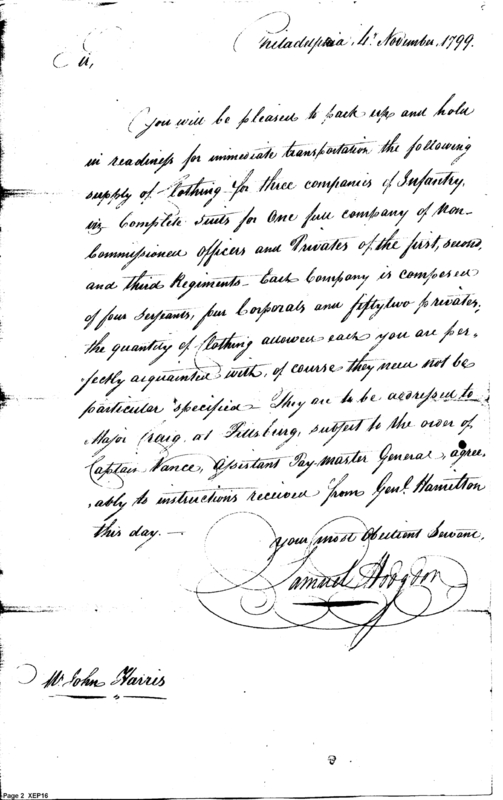 Philadelphia, 4th November, 1799.
Sir,
You will be pleased to pack up and hold
in readiness for immediate transportation the following
supply of Clothing for three companies of Infantry,
viz Complete suits for one full company of Non-
Commissioned Officers and Privates of the first, second,
and third Regiments – Each Company is composed
of four Serjeants, four Corporals and fifty two privates,
the quantity of Clothing allowed each you are per-
fectly acquainted with, of course they need not be
particular specified – They are to be addressed to
Major Craig, at Pittsburg, subject to the order of
Captain Vance, Assistant Pay Master General, agree-
ably to instructions received from Genl. Hamilton
this day. –
Your most Obedient Servant,
Samuel Hodgdon
Mr John Harris
Page 2 XEP16